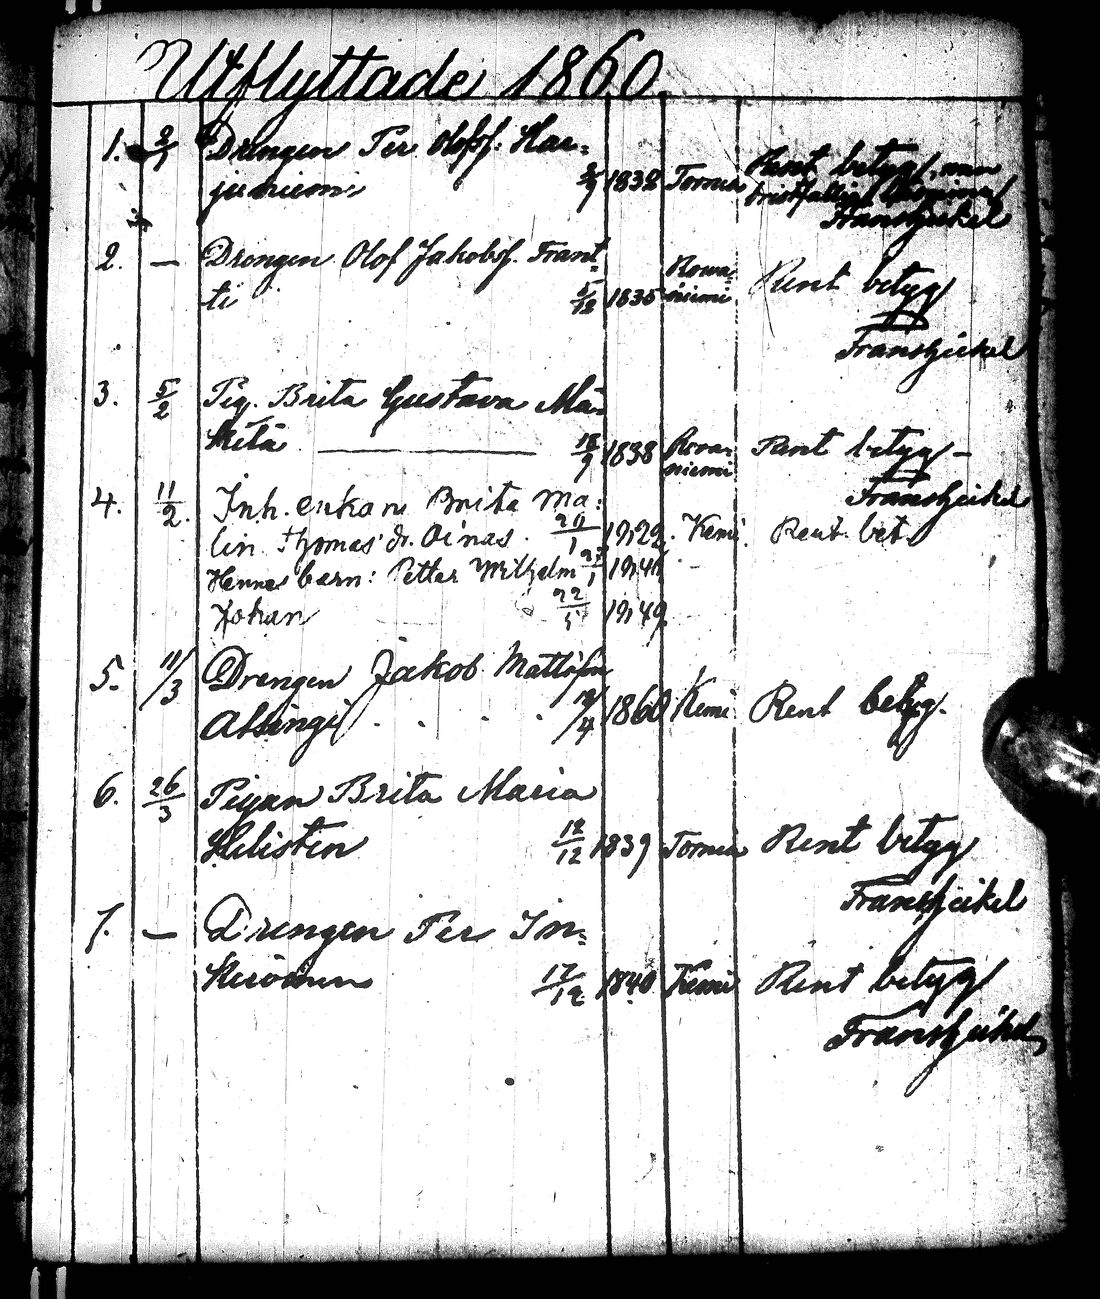 Utflyttade 1860.
1. Drengen Per Olofs. Har=
juniemi 1832 Tornea Rent betyg, men
bristfällig
Frans Heikel
2. — Drengen Olof Jakobss. Frant=
ti 5/12 1835 Rowa=niemi Rent betyg
Frans Heikel
3. 5/2 Pig. Brita Gustava Mä=
kitä 18/9 1838 Rova=niemi Rent betyg —
Frans Heikel
4. 11/2. Inh. enkan Brita Ma=
lin Thomas dr. Oinas. Kemi Rent. bet.
Hennes barn: Petter Wilhelm
Johan
5. 11/3 Drengen Jakob Mattss
Alsingi 1860 Kemi Rent betyg.
6. 26/3 Pigan Brita Maria
Helistén 12/12 1839 Tornea Rent betyg
Frans Heikel
7. — Drengen Per In=
keröinen 17/12 1840 Kemi Rent betyg
Frans Heikel